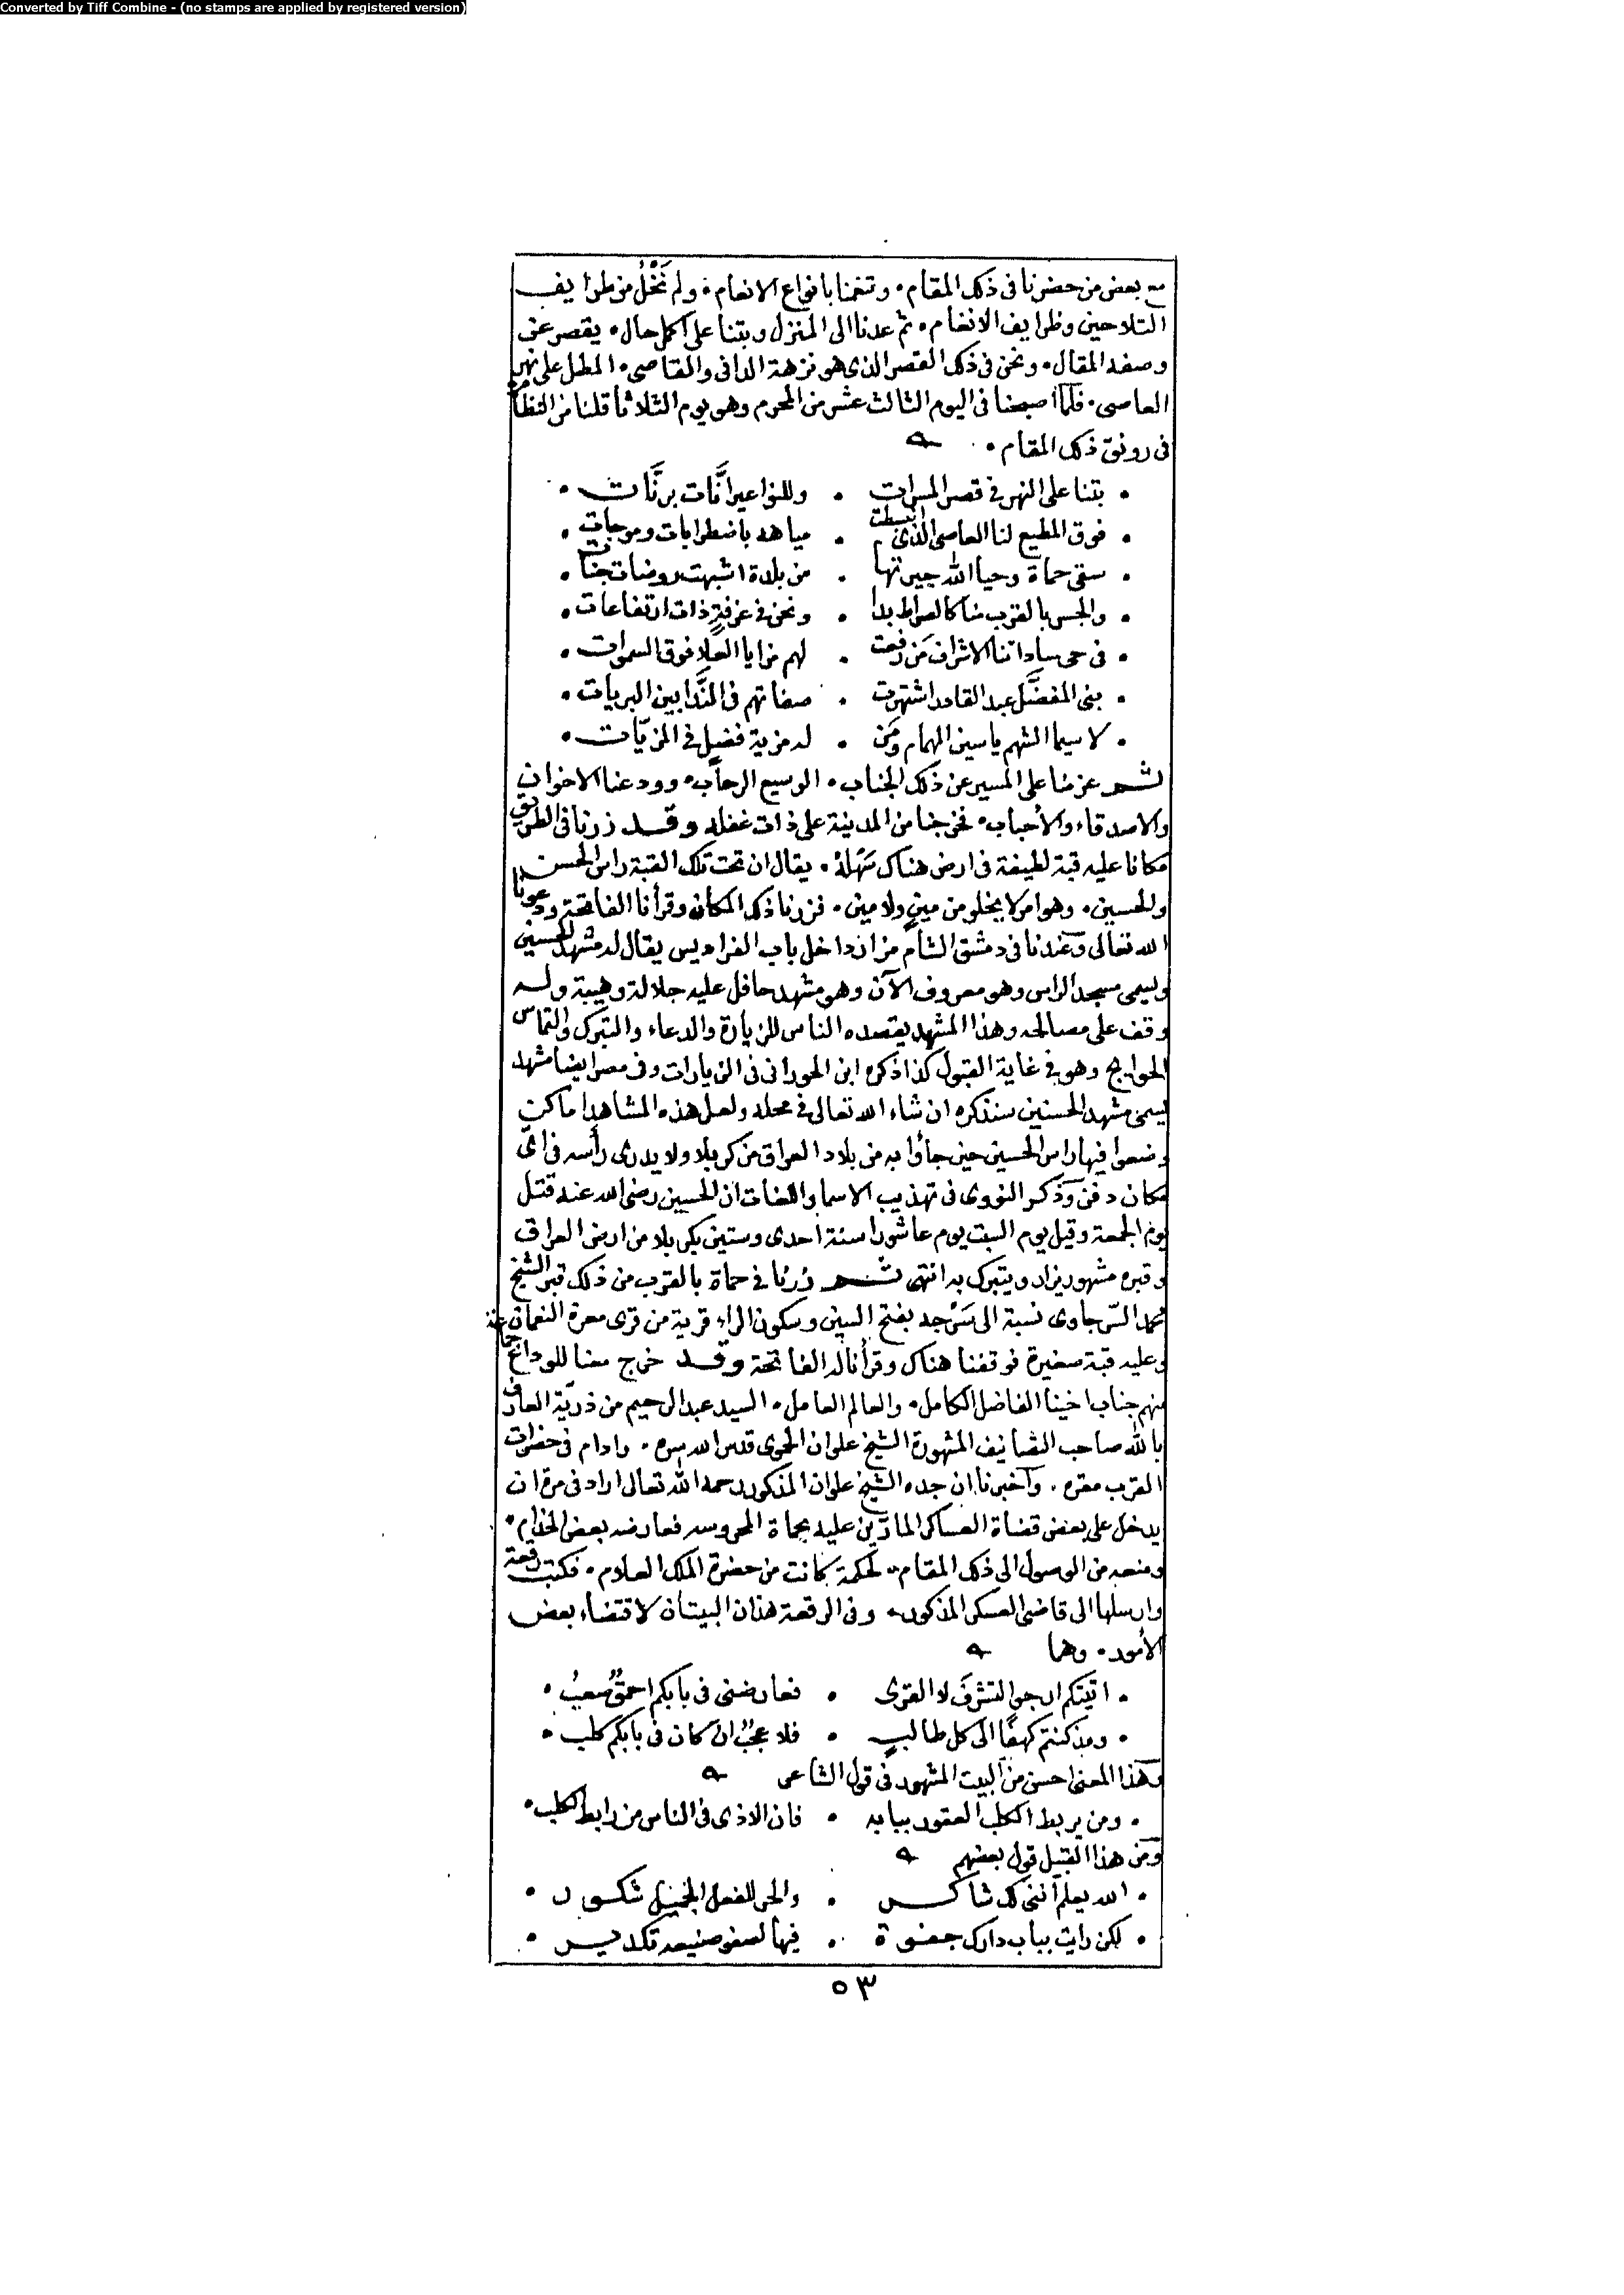 Converted by Tiff Combine - (no stamps are applied by registered version)
مع بعض من حضرنا فى ذلك المقام • وتنعمنا بانواع الانعام • ولم نَخْلُ من طرايف
التلاحين وظرايف الانغام • ثم عدنا الى المنزل وبتنا على اكمل حال • يقصر عن
وصفه المقال • ونحن فى ذلك القصر الذى هو نزهة الدانى والقاصى • المطل على نهر
العاصى • فلما أصبحنا فى اليوم الثالث عشر من المحرم وهو يوم الثلاثا قلنا من النظام
فى رونق ذلك المقام •
• بتنا على النهر فى قصر المسرات • وللنواعير انَّات برنَّات •
• فوق المطيع لنا العاصى الذى انبسطت • مياهه باضطرابات وموجات •
• سقى حماة وحيا الله جيرتها • من بلدة اشبهت روضات جنات •
• والجسر بالقرب منا كالصراط بدا • ونحن فى غرفةٍ ذات ارتفاعات •
• فى حى ساداتنا الاشراف مَن رفعت • لهم مزايا العلا فوق السموات •
• بنى المفضَّل عبد القادر اشتهرت • صفاتهم فى النَّدا بين البريات •
• لا سيما الشهم ياسين الهمام ومَن • له مزية فضلٍ فى المزيّات •
ثم عزمنا على المسير عن ذلك الجناب • الوسيع الرحاب • وودعنا الاخوان
والاصدقاء والأحباب • فخرجنا من المدينة على ذات غفله وقد زرنا فى الطريق
مكانا عليه قبة لطيفة فى ارض هناك سَهْلة • يقال ان تحت تلك القبة راس الحسن
والحسين • وهو امر لا يخلو من مين ولا مين • فزرنا ذلك المكان وقرأنا الفاتحة ودعونا
الله تعالى وعندنا فى دمشق الشام مزار داخل باب الفراديس يقال له مشهد الحسين
ويسمى مسجد الراس وهو معروف الآن وهو مشهد حافل عليه جلالة وهيبة وله
وقف على مصالحه وهذا المشهد يقصده الناس للزيارة والدعاء والتبرك والتماس
الحوايج وهو فى غاية القبول كذا ذكره ابن الحورانى فى الزيارات وفى مصر ايضا مشهد
يسمى مشهد الحسنين سنذكره ان شاء الله تعالى فى محله ولعل هذه المشاهد اماكن
وضعوا فيها راس الحسين حين جاؤا به من بلاد العراق من كربلا ولا يدرى رأسه فى اى
مكان دفن وذكر النووى فى تهذيب الاسما واللغات ان الحسين رضى الله عنه قتل
يوم الجمعة وقيل يوم السبت يوم عاشورا سنة احدى وستين بكربلا من ارض العراق
وقبره مشهور يزار ويتبرك به انتهى ثم زرنا فى حماة بالقرب من ذلك قبر الشيخ
محمد السّرجاوى نسبة الى سَرْجه بفتح السين وسكون الراء قرية من قرى معرة النعمان
وعليه قبة صغيرة فوقفنا هناك وقرأنا له الفاتحة وقد خرج معنا للوداع جماعة
منهم جناب اخينا الفاضل الكامل • والعالم العامل • السيد عبد الرحيم من ذريّة العارف
بالله صاحب التصانيف المشهورة الشيخ علوان الحموى قدس الله سره • وادام فى حضرات
القرب مقره • وأخبرنا ان جده الشيخ علوان المذكور رحمه الله تعالى اراد فى مرة ان
يدخل على بعض قضاة العساكر المارّين عليه بحماة المحروسه فعارضه بعض الخدام •
ومنعه من الوصول الى ذلك المقام • لحكمة كانت من حضرة الملك العلام • فكتب رقعة
وارسلها الى قاضى العسكر المذكور • وفى الرقعة هذان البيتان لاقتضاء بعض
الأمور • وهما
• اتيتكم ارجو التشرفَ لا القرى • فعارضنى فى بابكم احمقٌ صعبُ •
• ومذ كنتم كهفًا الى كل طالبٍ • فلا عجبٌ ان كان فى بابكم كلب •
وهذا المعنى احسن من البيت المشهور فى قول الشاعر
• ومن يربط الكلب العقور ببابه • فان الاذى فى الناس من رابط الكلب •
ومن هذا القبيل قول بعضهم
• الله يعلم أننى لك شاكر • والحر للفعل الجميل شكور •
• لكن رايت بباب دارك جفوة • فيها لصفو صنيعه تكدير •
٥٣